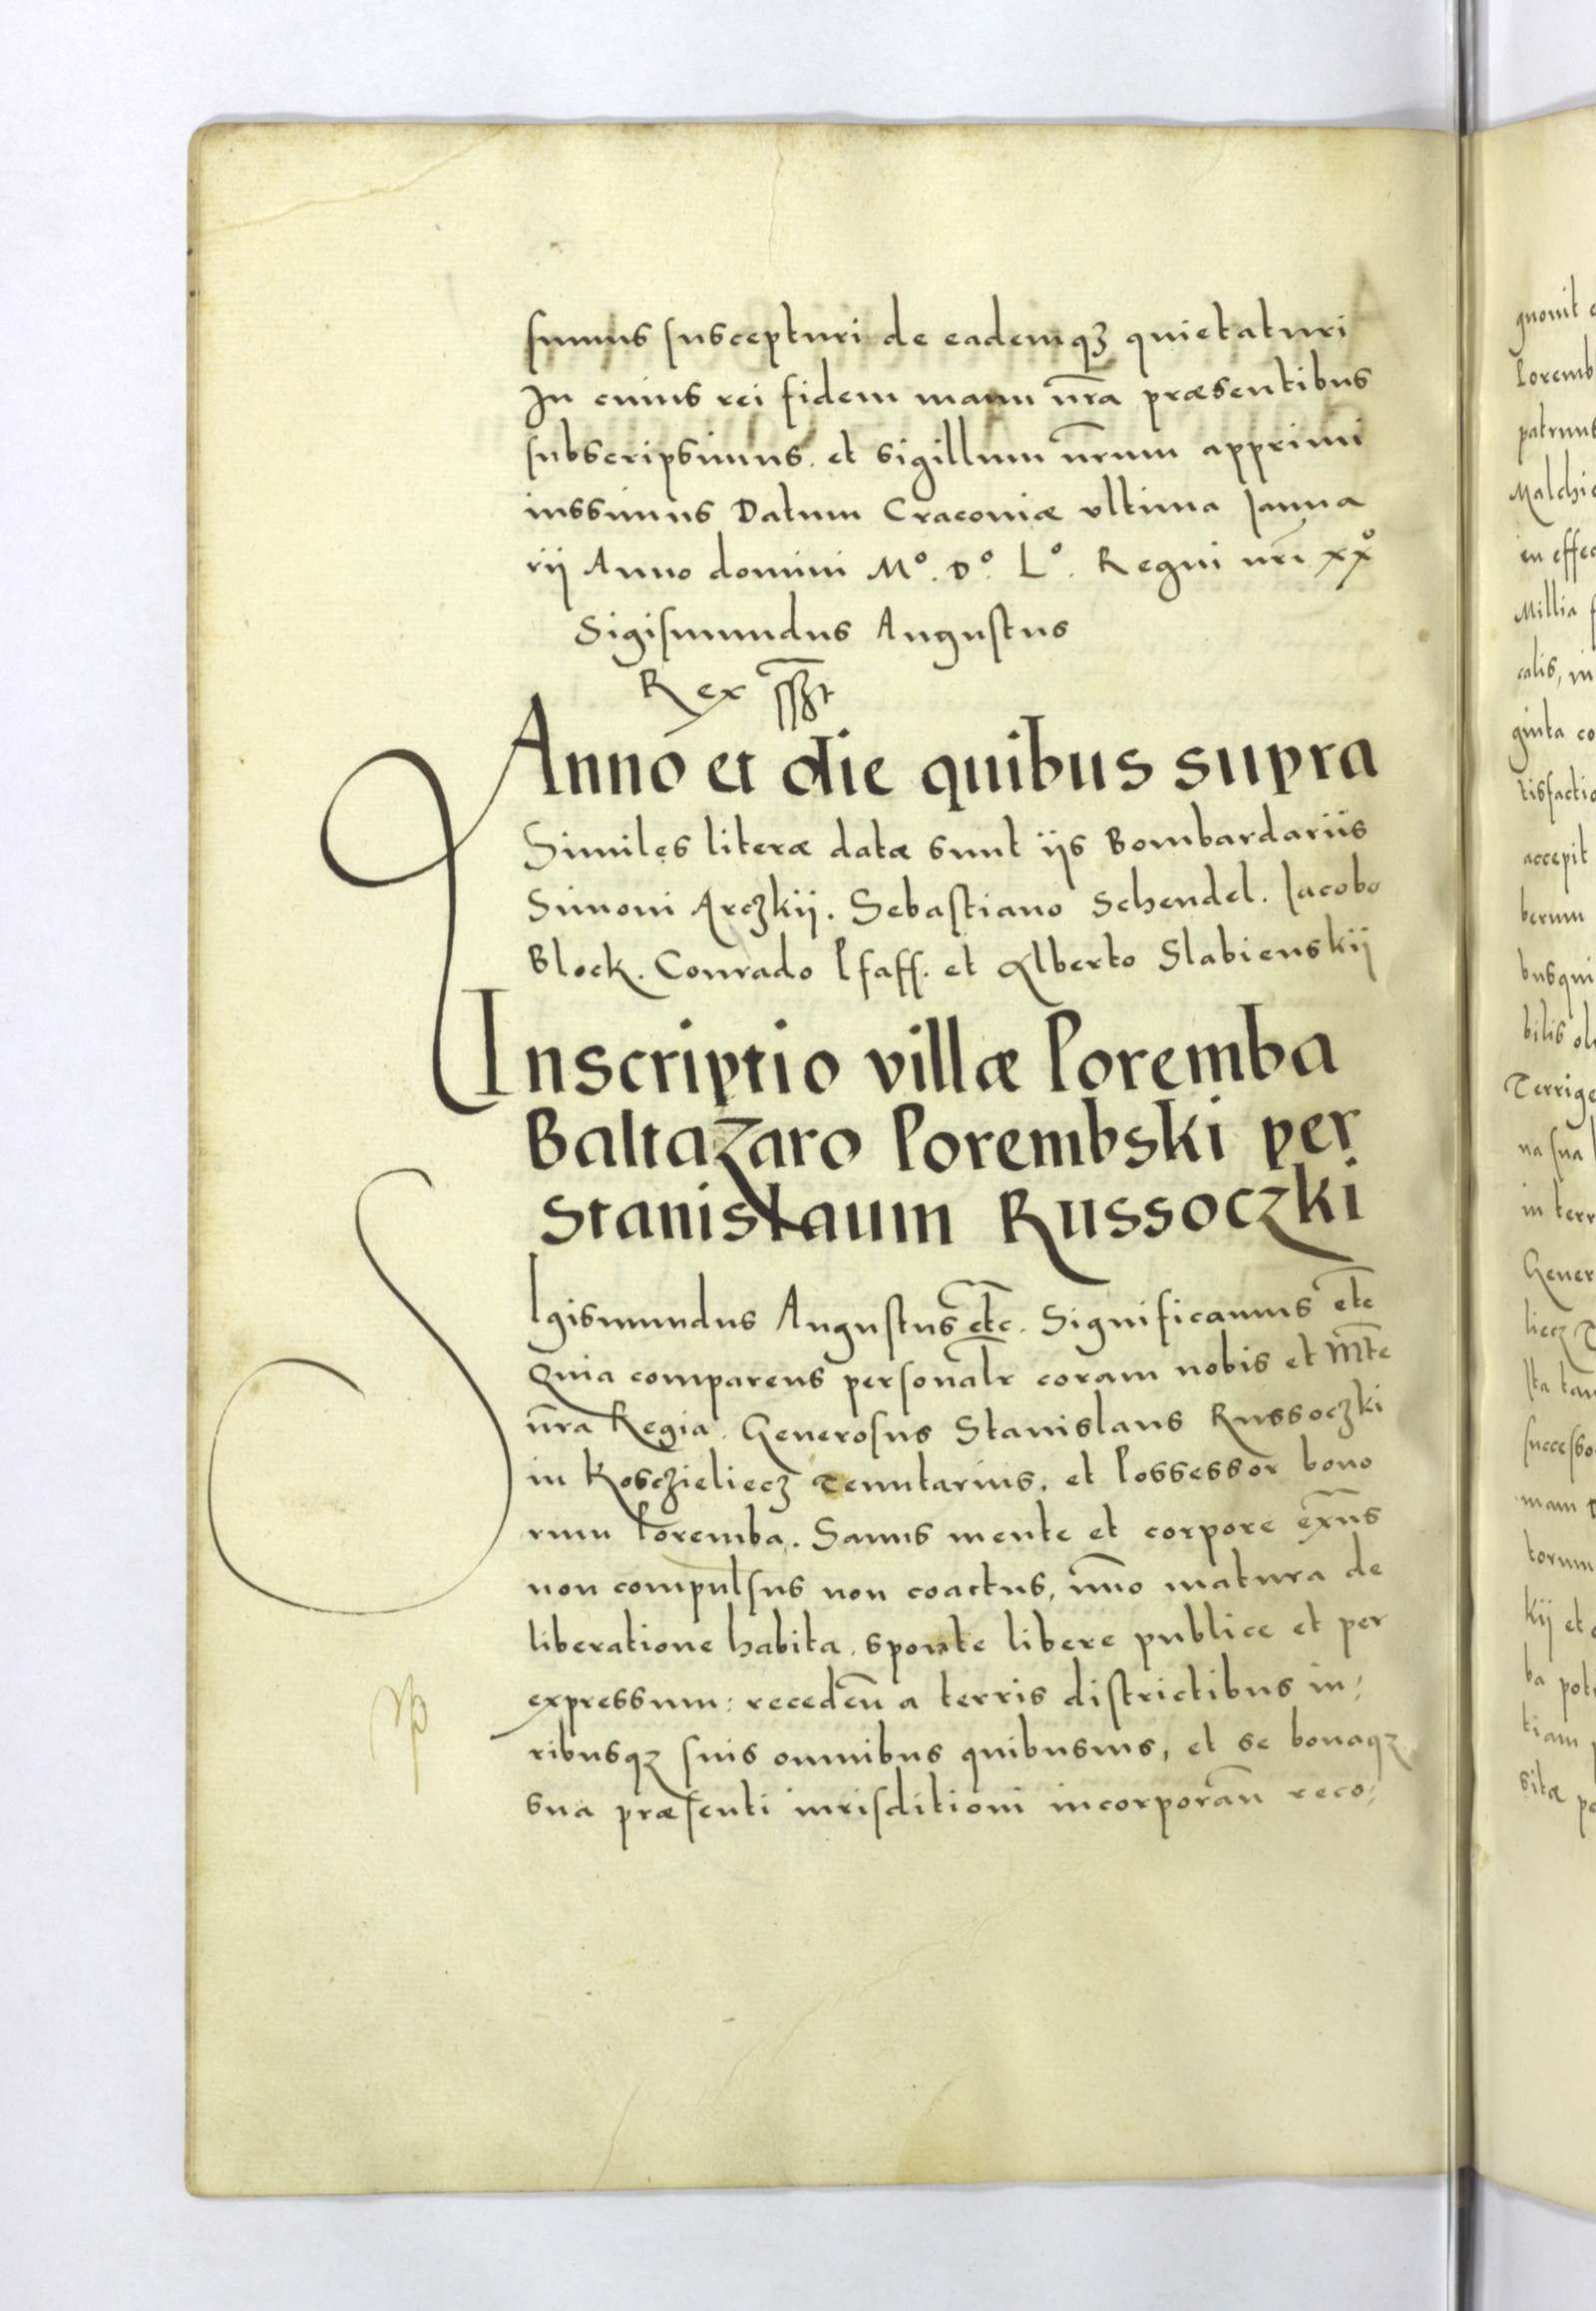 sumus suscepturi de eademq3 quietaturi
In cuius rei fidem manu nr̄a præsentibus
subscripsimus. et sigillum nr̄um apprimi
iussimus Datum Cracoviæ ultima Ianua
rij Anno domini M°. D°. L°. Regni nr̄i xx°
Sigismundus Augustus
Rex
Anno et die quibus supra
Similes literæ datæ sunt ijs Bombardariis
Simoni Arczkij. Sebastiano Schendel. Iacobo
Block. Conrado Pfaff. et Alberto Slabienskij
Inscriptio villæ Poremba
Baltazaro Porembski per
Stanislaum Russoczki
SIgismundus Augustus etc. Significamus etc
Quia comparens personalr̄ coram nobis et Mt̄e
nr̄a Regia. Generosus Stanislaus Russoczki
in Kosczieliecz Tenutarius. et Possessor bono
rum Poremba. Sanus mente et corpore exn̄s
non compulsus non coactus, im̄o matura de
liberatione habita. sponte libere publice et per
expressum: receden̄ a terris districtibus iu:
ribusq3 suis omnibus quibusuis, et se bonaq3
sua præsenti iurisditioni incorporan̄ reco:
gnouit
Poremb
patruus
Malchi
en effec
Millia
calis, in
ginta co
tisfactio
accepit
berum
busqui
bilis ol
Terrige
na sua
in terr
Gener
liecz
Ita tam
successo
mam
torum
kij et
ba pot
tiam
sitæ